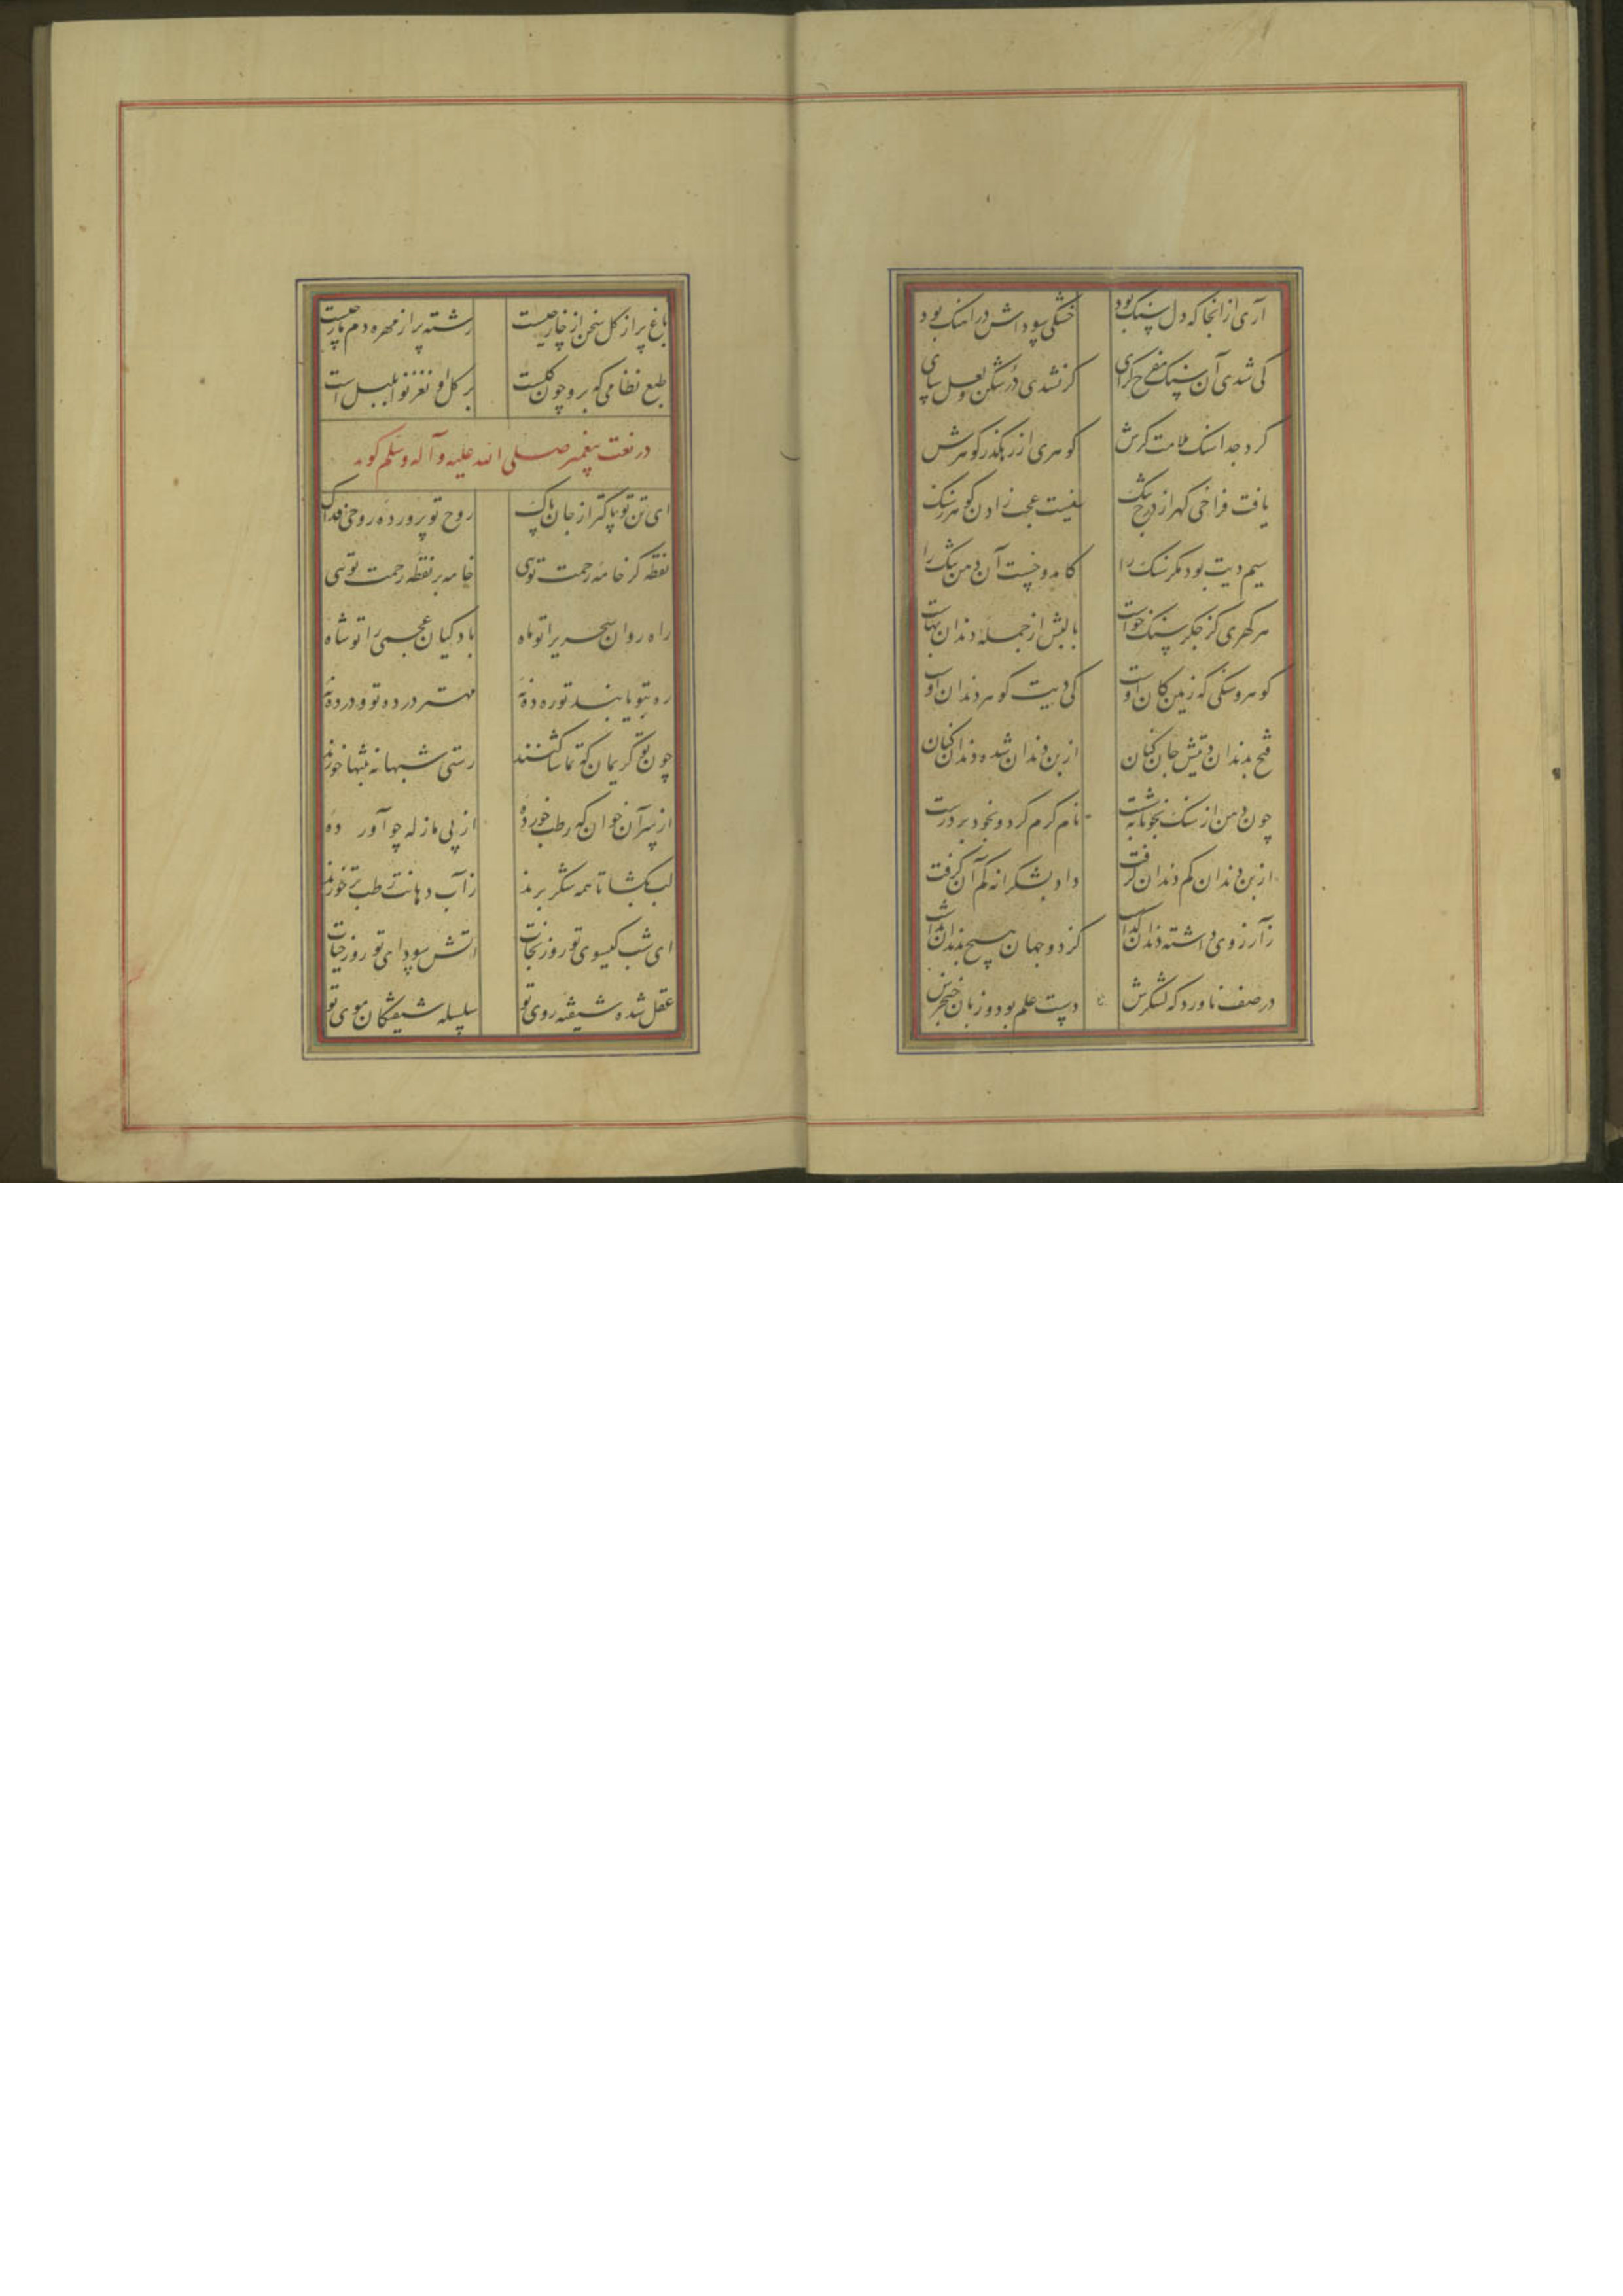 آری از آنجا که دل سنک بود خشکی سوداش در آهنک بود
کی شدی آن سنک مفرح کرای کر نشدی درشکن و لعل سای
کرد جدا سنک ملامت کرش کوهری از رهکذر کوهرش
یافت فراخی کهر از درج تنک نیست عجب زادن کوهر ز سنک
سیم دیت بود مکر سنک را کامد و خست آن دهن تنک را
هر کهری کز جکر سنک خواست بالبش از جمله دندان بهاست
کوهر سنکی که زمین کان اوست کی دیت کوهر دندان اوست
فتح بدندان دیتش جان کنان از بن دندان شده دندان کنان
چون دهن از سنک بخونابه شست نام کرم کرد و بخود بر درست
از بن دندان کم دندان کرفت داد بشکرانه کم آن کرفت
زآرزوی داشته دندان کذاشت کز دو جهان هیچ بدندان نداشت
در صف ناورد که لشکرش دست علم بود و زبان خنجرش
باغ پر از کل سخن از خار چیست رشته پر از مهره دم مار چیست
طبع نظامی که برو چون کلست بر کل او نغز نوا بلبل است
در نعت پیغمبر صلی الله علیه و آله وسلم کوید
ای تن تو پاکتر از جان پاک روح تو پرورده روحی فداک
نقطه کر خامه رحمت تویی خامه بر نقطه رحمت تویی
راه روان سحریرا تو ماه یادکیان عجمی را تو شاه
ره بتو یابند تو ره ده نهٔ مهتر ده تو و در ده نهٔ
چون تو کریمان که تماشا کنند رستی شبها نه بتنها خورند
از سر آن خوان که رطب خورده از پی ما زله چو آورده
لب بکشا تا همه شکر برند زآب دهانت رطب تر خورند
ای شب کیسوی تو روز نجات اتش سودای تو روز حیات
عقل شده شیفته روی تو سلسله شیفتکان موی تو